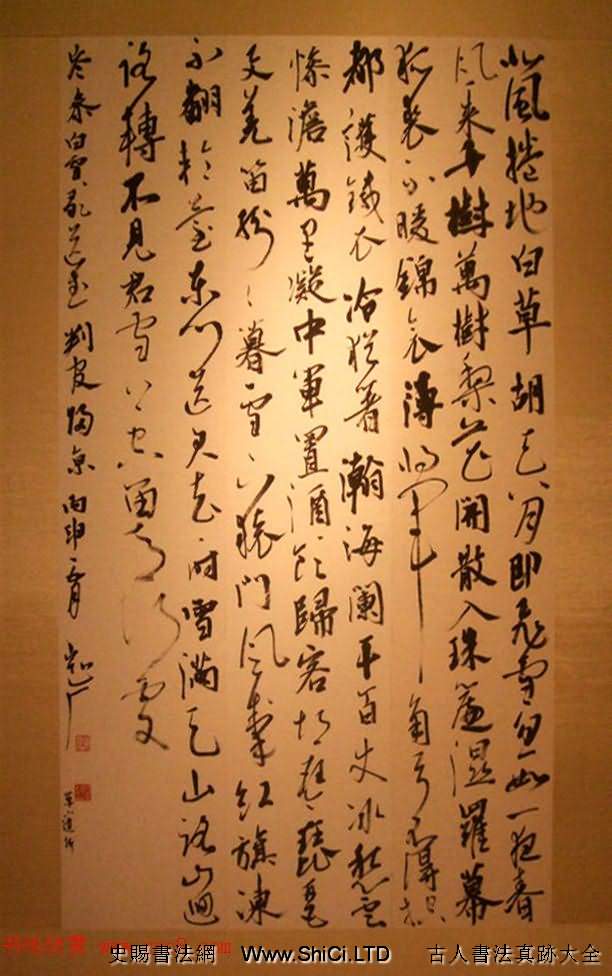 北風捲地白草胡天八月即飛雪忽如一夜春
風來千樹萬樹梨花開散入珠簾濕羅幕
狐裘不暖錦衾薄將軍角弓不得控
都護鐵衣冷猶著瀚海闌干百丈冰愁雲
慘澹萬里凝中軍置酒飲歸客胡琴琵琶
与羌笛紛〻暮雪下轅門風掣紅旗凍
不翻輪臺東門送君去〻時雪滿天山路山迴
路轉不見君雪上空留馬行處
岑參白雪歌送武判官歸京 丙申
史賜書法網 www.ShiCi.LTD 古人書法真跡大全